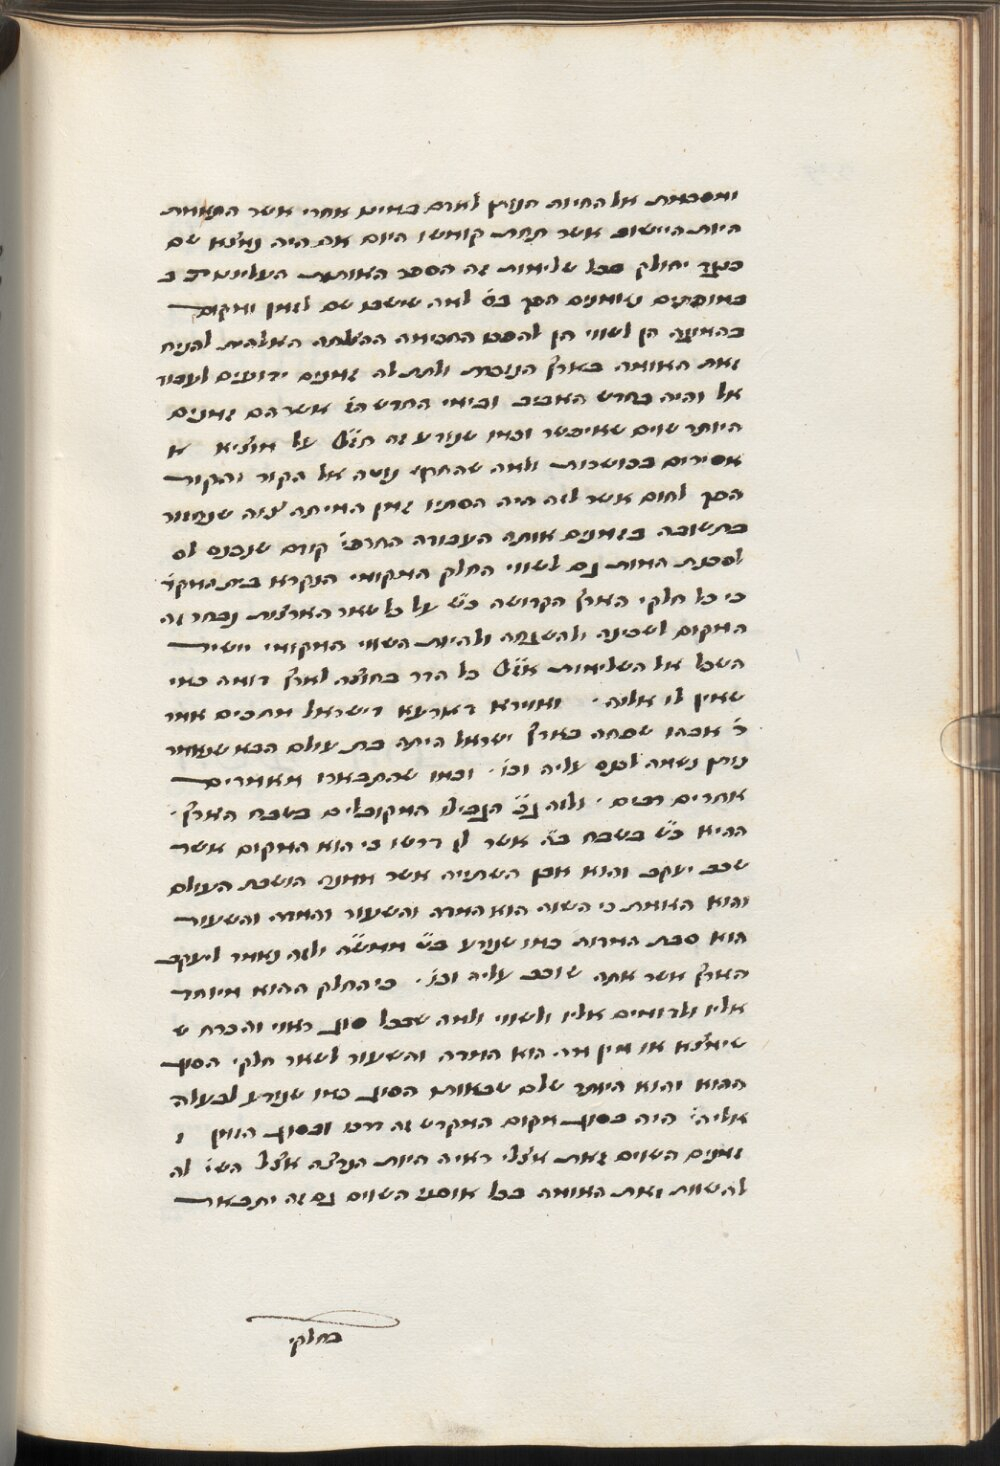 ומסכמת אל החיות הנותן לאדם באיש אחרי אשר הקאמת
היות היישוב אשר תחת קומשו היום אם היה נמצא שם
כנגד יחולק מכל שלימות זה הספר האותות העליונות ב
במופתים נשומנים הפך בם למה שישכון שם לזמן ומקום
בהמזגה הן לשווי הן להסם החכימה ההצלחה האלהית להניח
זאת האומה בארץ הנזכרת ולתת לה זמנים ידועים לעבוד
אל והיה בחדש האביב ובימי החדש הז׳ אשר הם זמנים
היותר שוים שאיפשר וכמו שנודע זה חז״ל על מוציא א
אסירים בכושרות ולמה שהחרף נוטה אל הקור והקור
הפך לחום אשר לזה היה הסתיו זמן המיתה צוה שנחזור
בתשובה בזמנים אותה העבודה החרפי׳ קודם שנכנס לס
לסכנת המות גם לשווי החלק המקומי הנקרא בית המקד׳
כי כל חלקי הארץ הקדושה כ״ש על כל שאר הארצות נבחר זה
המקום לשכינה ולהשגחה ולהיות השווי המקומי יישיר
השכל אל השלימות אז״ל כל הדר בחוצה לארץ דומה כמי
שאין לו אלוה ׳ ואוירא דארעא דישראל מחכים אמר
ר׳ אבהו שפחה בארץ ישראל היתה בת עולם הבא שנאמר
נותן נשמה לעם עליה וכו׳ ׳ וכמו שהתבארו מאמרים
אחרים רבים ׳ ולזה ג״כ הגבילו המקובלים בשבח הארץ ׳
ההיא כ״ש בשבח ב״ה אשר לן דרשו כי הוא המקום אשר
שכב יעקב והוא אבן השתייה אשר ממנה הושתת העולם
והוא האמת כי השוה הוא המדה והשעור והמדה והשעור
הוא סבת המדות כמו שנודע ב״ש ממש״ה ולזה נאמר ליעקב
הארץ אשר אתה שוכב עליה וכו׳ ׳ כי החלק ההוא מיוחד
אליו ולדומים אליו ולשווי ולמה שבכל סוג ראוי והכרח ש
שימצא או מין מה הוא המדה והשעור לשאר חלקי הסוג
ההוא והוא היותר שלם שבאותו הסוג כמו שנודע לבעלה
אליה׳ היה בסוג מקום המקדש זה מדם ובסוג הזמן ז
זמנים השוים זאת אצלי ראיה היות הנרצה אצל הש׳ לה
להשוות זאת האומה בכל אופני השוים גם זה יתבאר
בחלקי